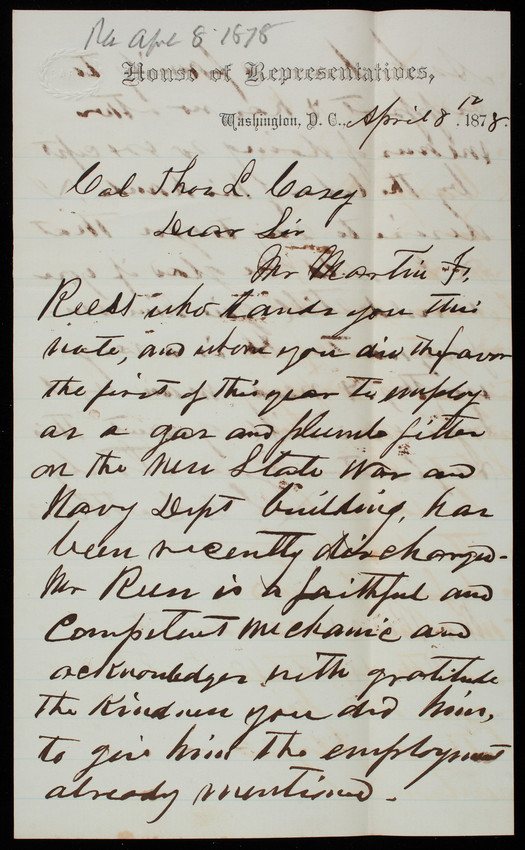 Rec April 8 1878
House of Representatives,
Washington, D. C., April 8th. 1878.
Col Thos L. Casey
Dear Sir
Mr Martin F.
Reess who hands you this
note, and whom you did the favor
the first of this year to employ
as a gas and plumb fitter
on the New State War and
Navy Dept building, has
been recently discharged-
Mr Rees is a faithful and
Competent Mechanic and
acknowledges with gratitude
the kindness you did him,
to give him the employment
already mentioned.